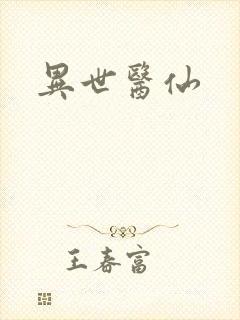 異世醫仙
王春富